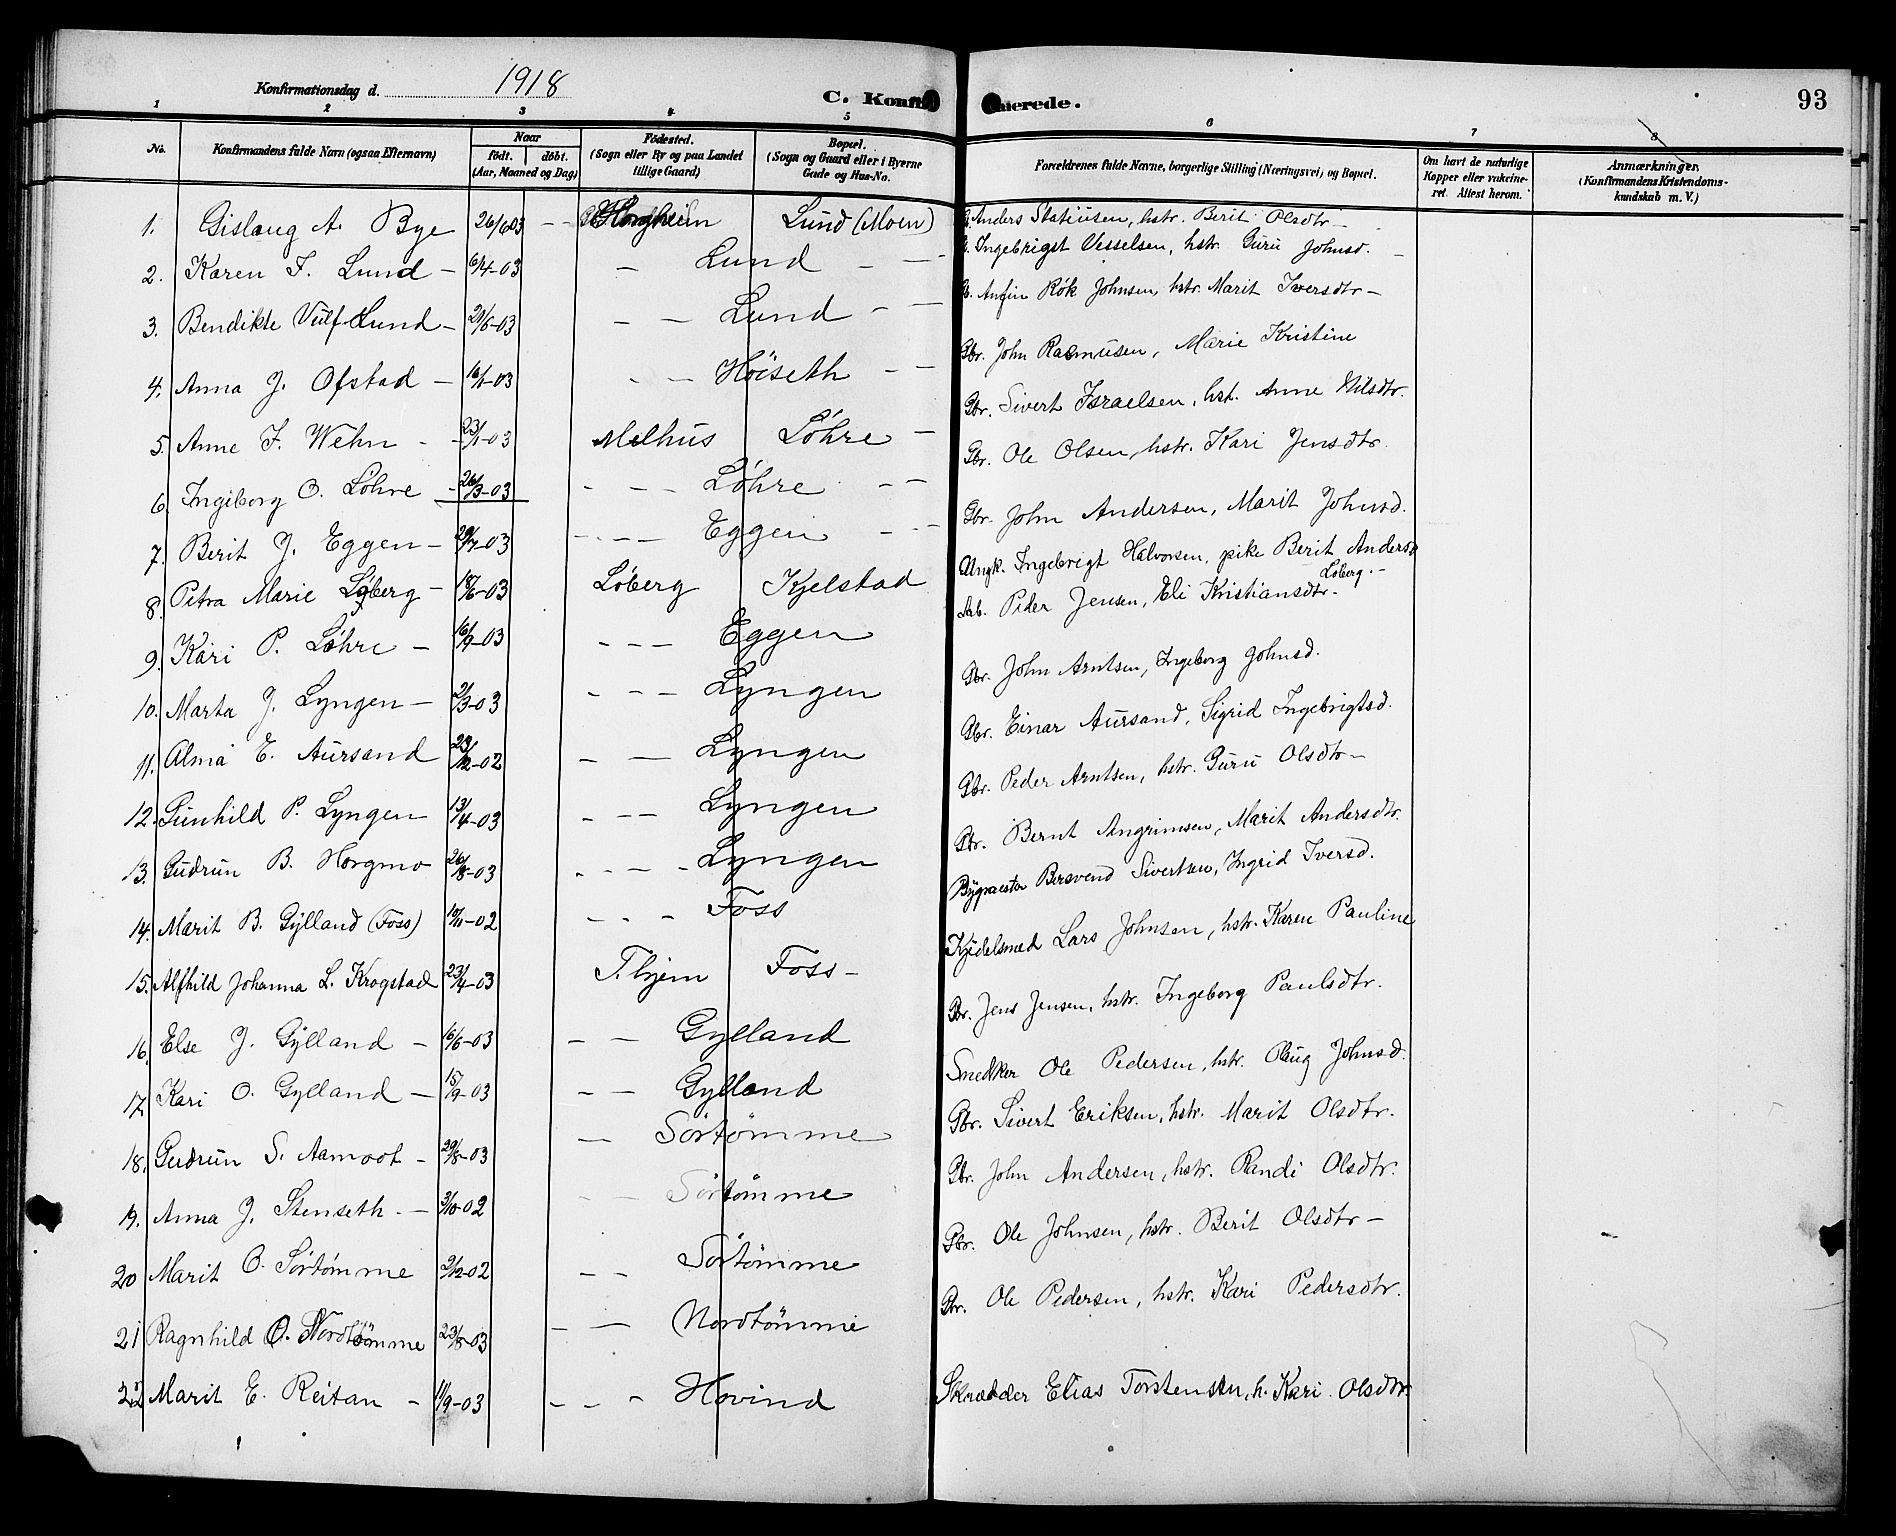 Konfirmationsdag d. 1918 C. Konfirmerede. 93
1 2 3 4 5 6 7 8
No. Konfirmandens fulde Navn (ogsaa Efternavn) Naar født. døbt. (Aar, Maaned og Dag) Fødested. (Sogn eller By og paa Landet tillige Gaard) Bopæl. (Sogn og Gaard eller i Byerne Gade og Hus-No. Forældrenes fulde Navne, borgerlige Stilling (Næringsvei) og Bopæl. Om havt de naturlige Kopper eller vakcineret. Attest herom. Anmærkninger. (Konfirmandens Kristendomskundskab m. V.)
1. Gislaug A. Bye 26/6 03 - - Lund (Moen) Anders Statiusen, hstr. Berit Olsdtr -
2. Karen I. Lund - 6/4-03 - Lund - - Ingebrigt Vesselsen, hstr. Guru Johnsd. -
3. Bendikte Vulf Lund - 21/5-03 - - Lund - - Anfin Rök Johnsen, hstr. Marit Iversdtr -
4. Anna J. Ofstad - 16/1-03 - - Höiseth - - Gbr. John Rasmusen, Marie Kristine
5. Anne I. Wehn - 23/1-03 Melhus Löhre - Gbr. Sivert Israelsen, hst. Anne Nilsdtr.
6. Ingeborg O. Löhre - 26/3-03 - - - Löhre - - Gbr. Ole Olsen, hstr. Kari Jensdtr.
7. Berit J. Eggen - 29/7-03 - - - - Eggen - - - Gbr. John Andersen, Marit Johnsd.
8. Petra Marie Löberg - 18/6-03 Löberg Kjelstad Ungk. Ingebrigt Halvorsen, pike Berit Andersd Löberg. -
9. Kari P. Löhre - 16/9-03 - - - Eggen Arb. Peder Jensen, Eli Kristiansdtr -
10. Marta J. Lyngen - 2/3-03 - - - Lyngen Gbr. John Arntsen, Ingeborg Johnsd.
11. Alma E. Aursand 23/12-02 - - Lyngen Gbr. Einar Aursand, Sigrid Ingebrigtsd.
12. Gunhild P. Lyngen 13/4-03 - - - Lyngen Gbr. Peder Arntsen, hstr. Guru Olsdtr -
13. Gudrun B. Horgmo 26/8-03 - - - - Lyngen Gbr. Bernt Angrimsen, Marit Andersdtr.
14. Marit B. Gylland (Foss) 10/11-02 - - - Foss Bygmester Bersvend Sivertsen, Ingrid Iversd.
15. Alfhild Johanna L. Krogstad 23/4-03 T.hjem Foss - Kjedelsmed Lars Johnsen, hstr. Karen Pauline
16. Else J. Gylland - 16/6-03 - - Gylland Gbr. Jens Jensen, hstr. Ingeborg Paulsdtr.
17. Kari O. Gylland - 15/9-03 - - Gylland Snedker Ole Pedersen, hstr. Olaug Johnsd.
18. Gudrun S. Aamoot - 29/8-03 - Sörtömme Gbr. Sivert Eriksen, hstr. Marit Olsdtr.
19. Anna J. Stenseth - - 3/10-02 - - Sörtömme Gbr. John Andersen, hstr. Randi Olsdtr.
20 Marit O. Sörtömme 9/12-02 - - Sörtömme Gbr. Ole Johnsen, hstr. Berit Olsdtr -
21 Ragnhild O. Nordtömme 23/8-03 - - Nordtömme Gbr. Ole Pedersen, hstr. Kari Pedersdtr.
22 Marit E. Reitan - 11/9-03 - - - Hovind Skrædder Elias Torstensen, h. Kari Olsdtr